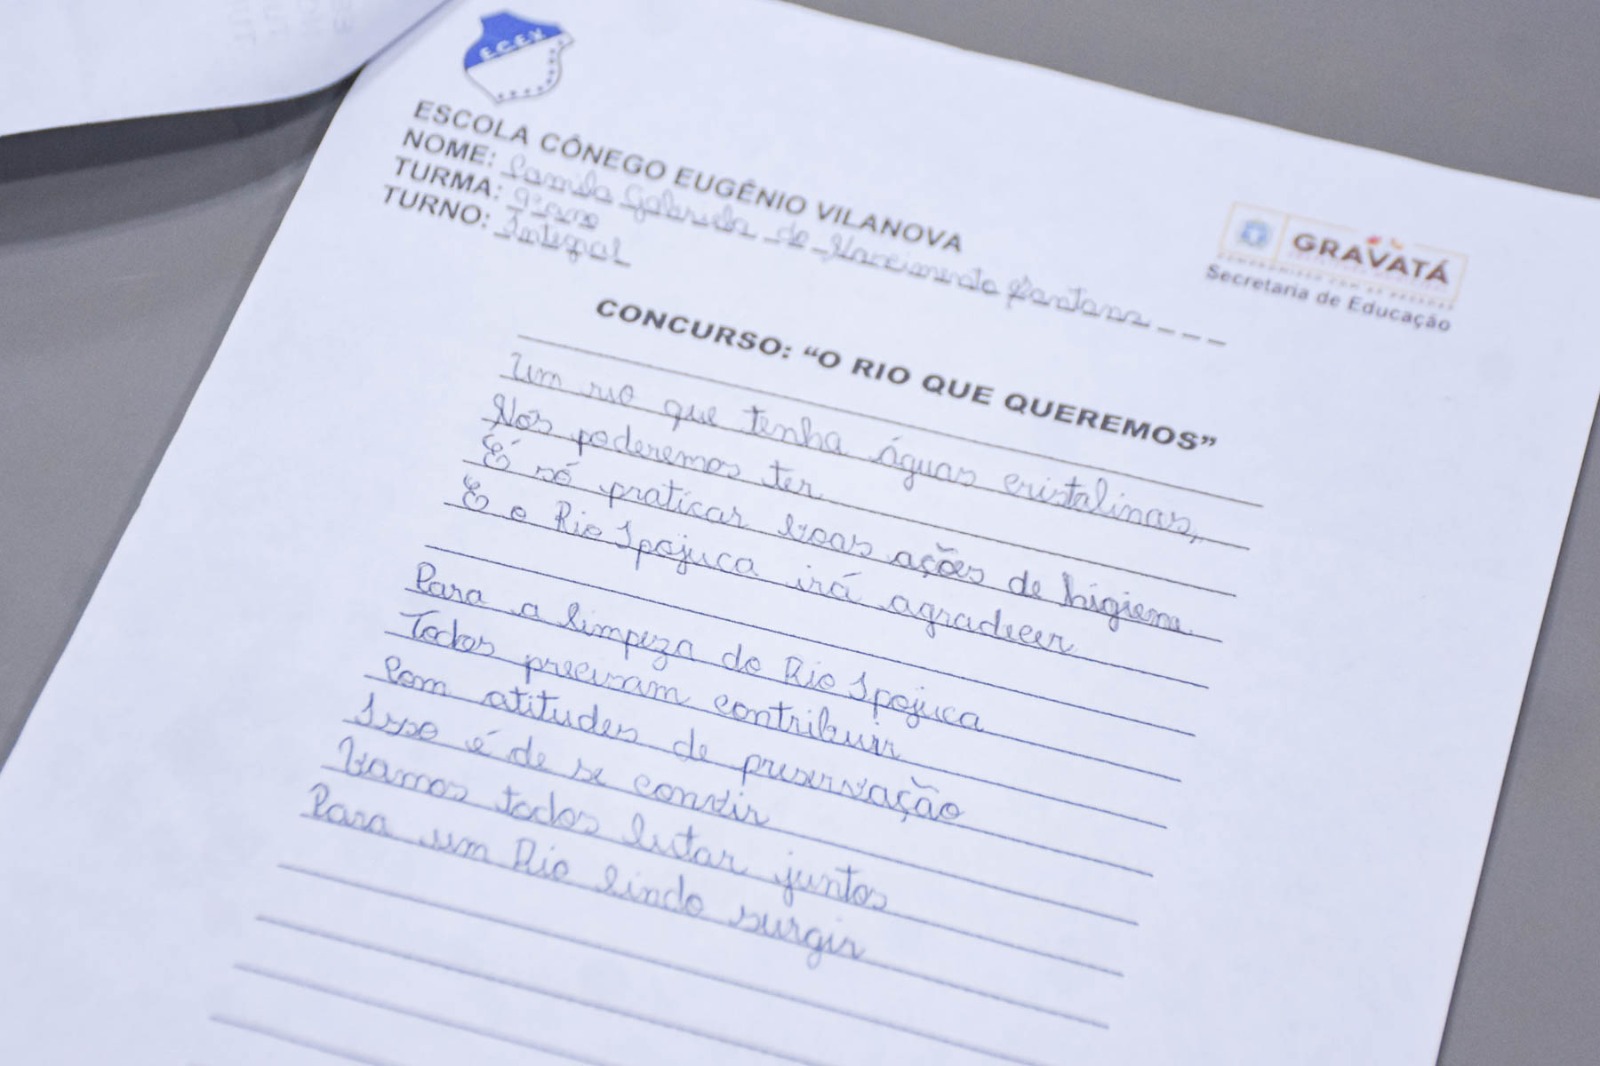 E.C.E.V
ESCOLA CÔNEGO EUGÊNIO VILANOVA
NOME: Camila Gabriela do Nascimento Santana
TURMA: 9º ano
TURNO: Integral
GRAVATÁ
COMPROMISSO COM AS PESSOAS
Secretaria de Educação
CONCURSO: “O RIO QUE QUEREMOS”
Um rio que tenha águas cristalinas,
Nós poderemos ter
É só praticar boas ações de higiene
E o Rio Ipojuca irá agradecer
Para a limpeza do Rio Ipojuca
Todos precisam contribuir
Com atitudes de preservação
Isso é de se convir
Vamos todos lutar juntos
Para um Rio lindo surgir